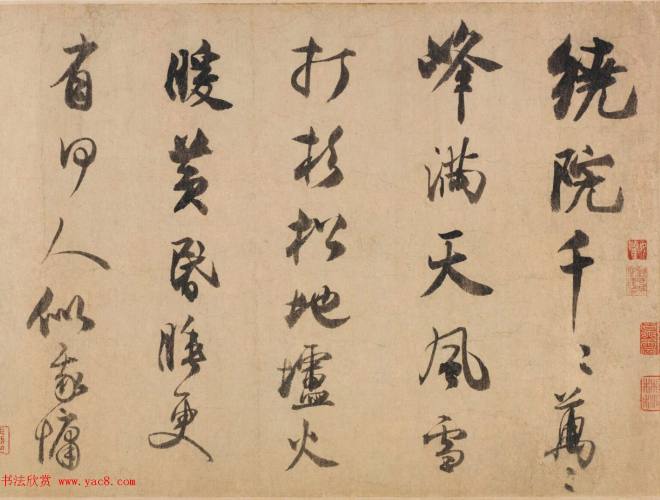 繞院千〻萬〻
峰滿天風雪
打杉松地壚火
暖黃昏睡更
有何人似我慵
书法欣赏 www.yac8.com